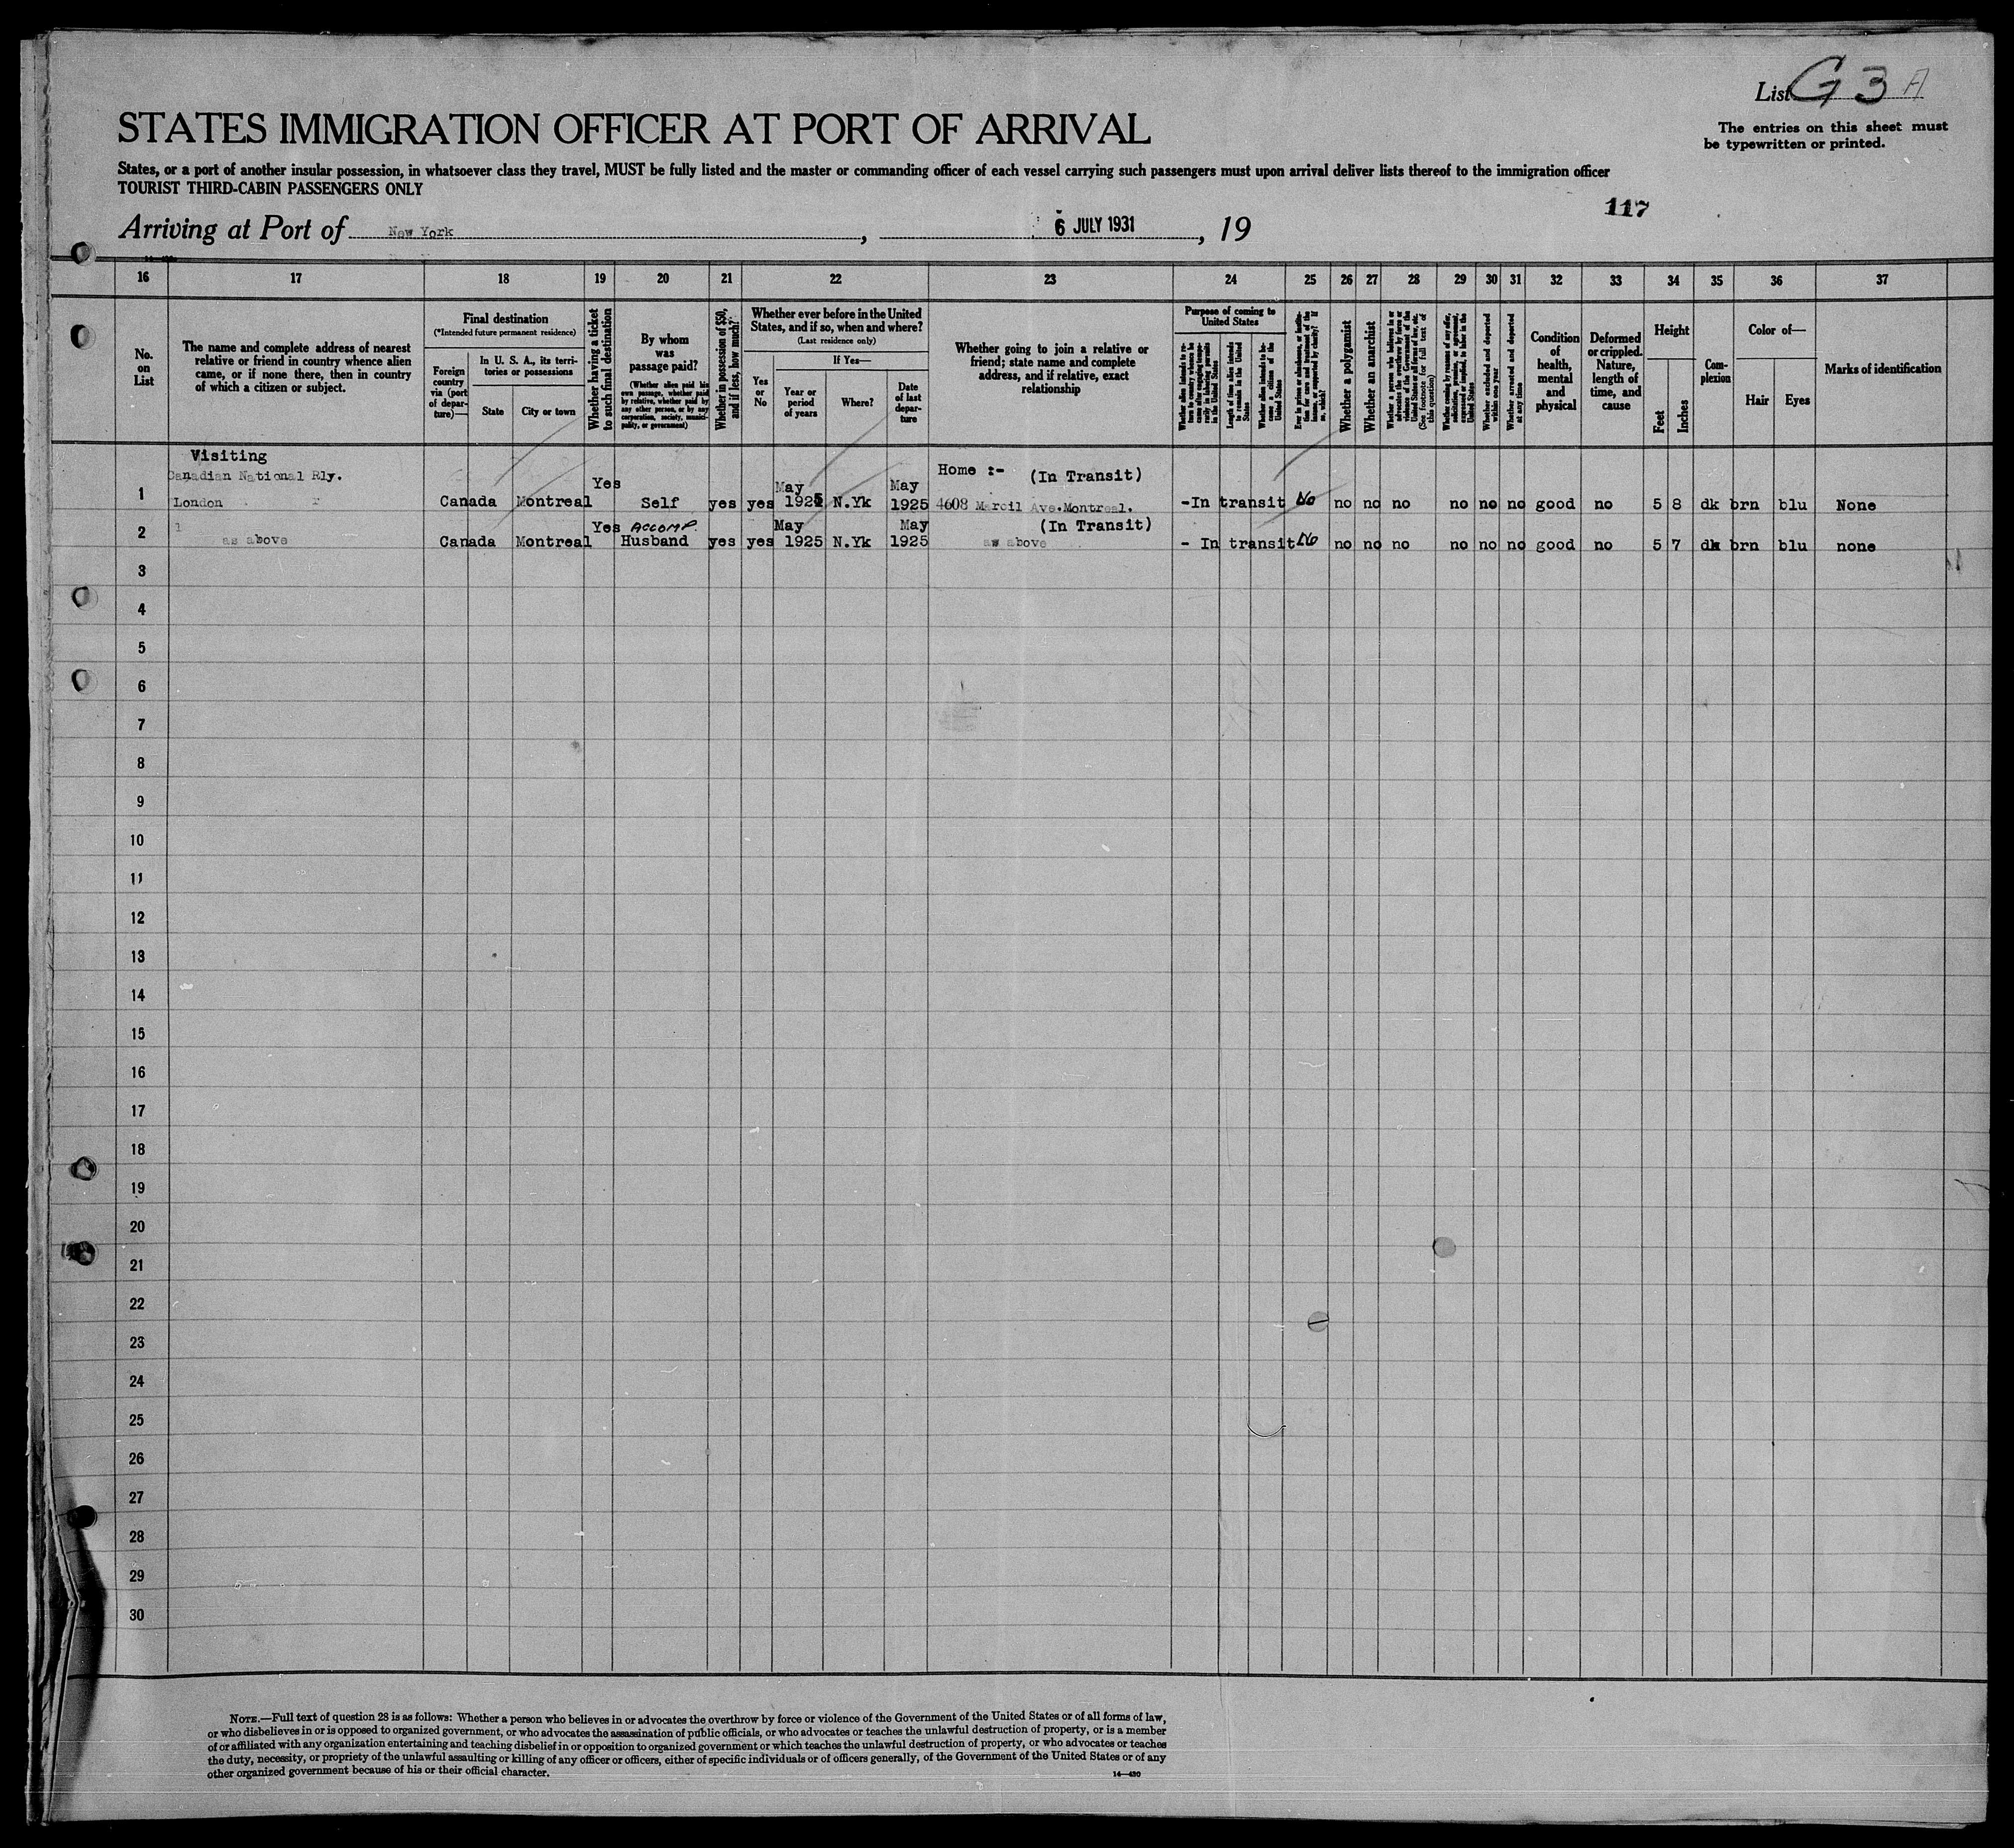 List G 3 A
STATES IMMIGRATION OFFICER AT PORT OF ARRIVAL
The entries on this sheet must
be typewritten or printed.
States, or a port of another insular possession, in whatsoever class they travel, MUST be fully listed and the master or commanding officer of each vessel carrying such passengers must upon arrival deliver lists thereof to the immigration officer
TOURIST THIRD-CABIN PASSENGERS ONLY
117
Arriving at Port of New York, 6 JULY 1931, 19
16 17 18 19 20 21 22 23 24 25 26 27 28 29 30 31 32 33 34 35 36 37
No.
on
List
The name and complete address of nearest
relative or friend in country whence alien
came, or if none there, then in country
of which a citizen or subject.
Final destination
(*Intended future permanent residence)
Foreign
country
via (port
of depar-
ture)—
In U. S. A., its terri-
tories or possessions
State
City or town
Whether having a ticket
to such final destination
By whom
was
passage paid?
(Whether alien paid his
own passage, whether paid
by relative, whether paid by
any other person, or by any
corporation, society, munici-
pality, or government)
Whether in possession of $50,
and if less, how much?
Whether ever before in the United
States, and if so, when and where?
(Last residence only)
If Yes—
Yes
or
No
Year or
period
of years
Where?
Date
of last
depar-
ture
Whether going to join a relative or
friend; state name and complete
address, and if relative, exact
relationship
Purpose of coming to
United States
Whether alien intends to re-
turn to country whence he
came after engaging tempo-
rarily in laboring pursuits
in the United States
Length of time alien intends
to remain in the United
States
Whether alien intends to be-
come a citizen of the
United States
Ever in prison or almshouse, or institu-
tion for care and treatment of the
insane, or supported by charity? If
so, which?
Whether a polygamist
Whether an anarchist
Whether a person who believes in or
advocates the overthrow by force or
violence of the Government of the
United States or all forms of law, etc.
(See footnote for full text of
this question)
Whether coming by reason of any offer,
solicitation, promise, or agreement,
expressed or implied, to labor in the
United States
Whether excluded and deported
within one year
Whether arrested and deported
at any time
Condition
of
health,
mental
and
physical
Deformed
or crippled.
Nature,
length of
time, and
cause
Height
Feet
Inches
Com-
plexion
Color of—
Hair
Eyes
Marks of identification
Visiting
Canadian National Rly. Yes May May Home :- (In Transit)
1 London Canada Montreal Self yes yes 1925 N.Yk 1925 4608 Marcil Ave. Montreal. -In transit No no no no no no no good no 5 8 dk brn blu None
1 Yes ACCOMP. May May (In Transit)
2 as above Canada Montreal Husband yes yes 1925 N.Yk 1925 as above - In transit No no no no no no no good no 5 7 dk brn blu none
3
4
5
6
7
8
9
10
11
12
13
14
15
16
17
18
19
20
21
22
23
24
25
26
27
28
29
30
NOTE.—Full text of question 28 is as follows: Whether a person who believes in or advocates the overthrow by force or violence of the Government of the United States or of all forms of law,
or who disbelieves in or is opposed to organized government, or who advocates the assassination of public officials, or who advocates or teaches the unlawful destruction of property, or is a member
of or affiliated with any organization entertaining and teaching disbelief in or opposition to organized government or which teaches the unlawful destruction of property, or who advocates or teaches
the duty, necessity, or propriety of the unlawful assaulting or killing of any officer or officers, either of specific individuals or of officers generally, of the Government of the United States or of any
other organized government because of his or their official character.
14—430